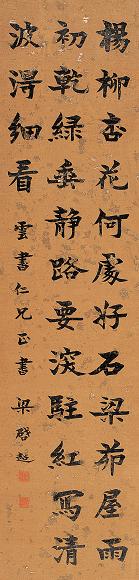 楊柳杏花何處好石梁茆屋雨
初乾綠垂靜路要深駐紅寫清
波得細看
雲書仁兄正書 梁啓超